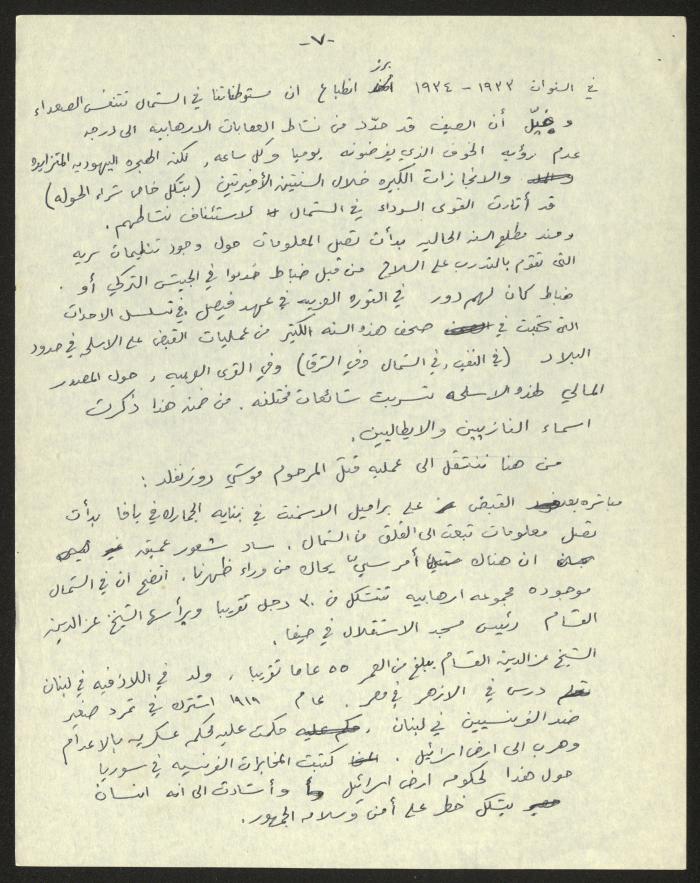 -٧-
في السنوات ١٩٣٣ - ١٩٣٤ برز انطباع ان مستوطناتنا في الشمال تتنفس الصعداء
و خُيّل أن الصيف قد حدّد من نشاط العصابات الارهابيه الى درجه
عدم رؤيه الخوف الذي يفرضونه يوميا وكل ساعه, لكنه الهجره اليهوديه المتزايده
والانجازات الكبيره خلال السنتين الأخيرتين (بشكل خاص شراء الحوله)
قد أثارت القوى السوداء في الشمال لاستئناف نشاطهم.
ومنذ مطلع السنه الحاليه بدأت تصل المعلومات حول وجود تنظيمات سريه
التى تقوم بالتدرب على السلاح من قبل ضباط خدموا في الجيش التركي أو
ضباط كان لهم دور في الثوره العربيه في عهد فيصل. في تسلسل الاحداث
التى في صحف هذه السنه الكثير من عمليات القبض على الاسلحه في حدود
البلاد (في النقب, في الشمال وفي الشرق) وفي القرى العربيه, حول المصدر
المالي لهذه الاسلحه تسربت شائعات مختلفه. من ضمنه هذا ذكرت
اسماء النازيين والايطاليين.
من هنا ننتقل الى عمليه قتل المرحوم موشي روزنفلد:
مباشره بعد القبض على براميل الاسمنت في بنايه الجمارك في يافا بدأت
تصل معلومات تبعث الى القلق من الشمال. ساد شعور عميق
ان هناك أمر سيئ يحاك من وراء ظهرنا. اتضح ان في الشمال
موجوده مجموعه ارهابيه تتشكل من ٣٠ رجل تقريبا ويرأسها الشيخ عز الدين
القسام رئيس مسجد الاستقلال في حيفا.
الشيخ عز الدين القسام يبلغ من العمر ٥٥ عاما تقريبا, ولد في اللاذقيه في لبنان
درس في الازهر في مصر. عام ١٩١٩ اشترك في تمرد صغير
ضد الفرنسيين في لبنان, حكمت عليه محكمه عسكريه بالاعدام
وهرب الى ارض اسرائيل. كتبت المخابرات الفرنسيه في سوريا
حول هذا لحكومه ارض اسرائيل وأشارت الى انه انسان
يشكل خطر على أمن وسلامه الجمهور.